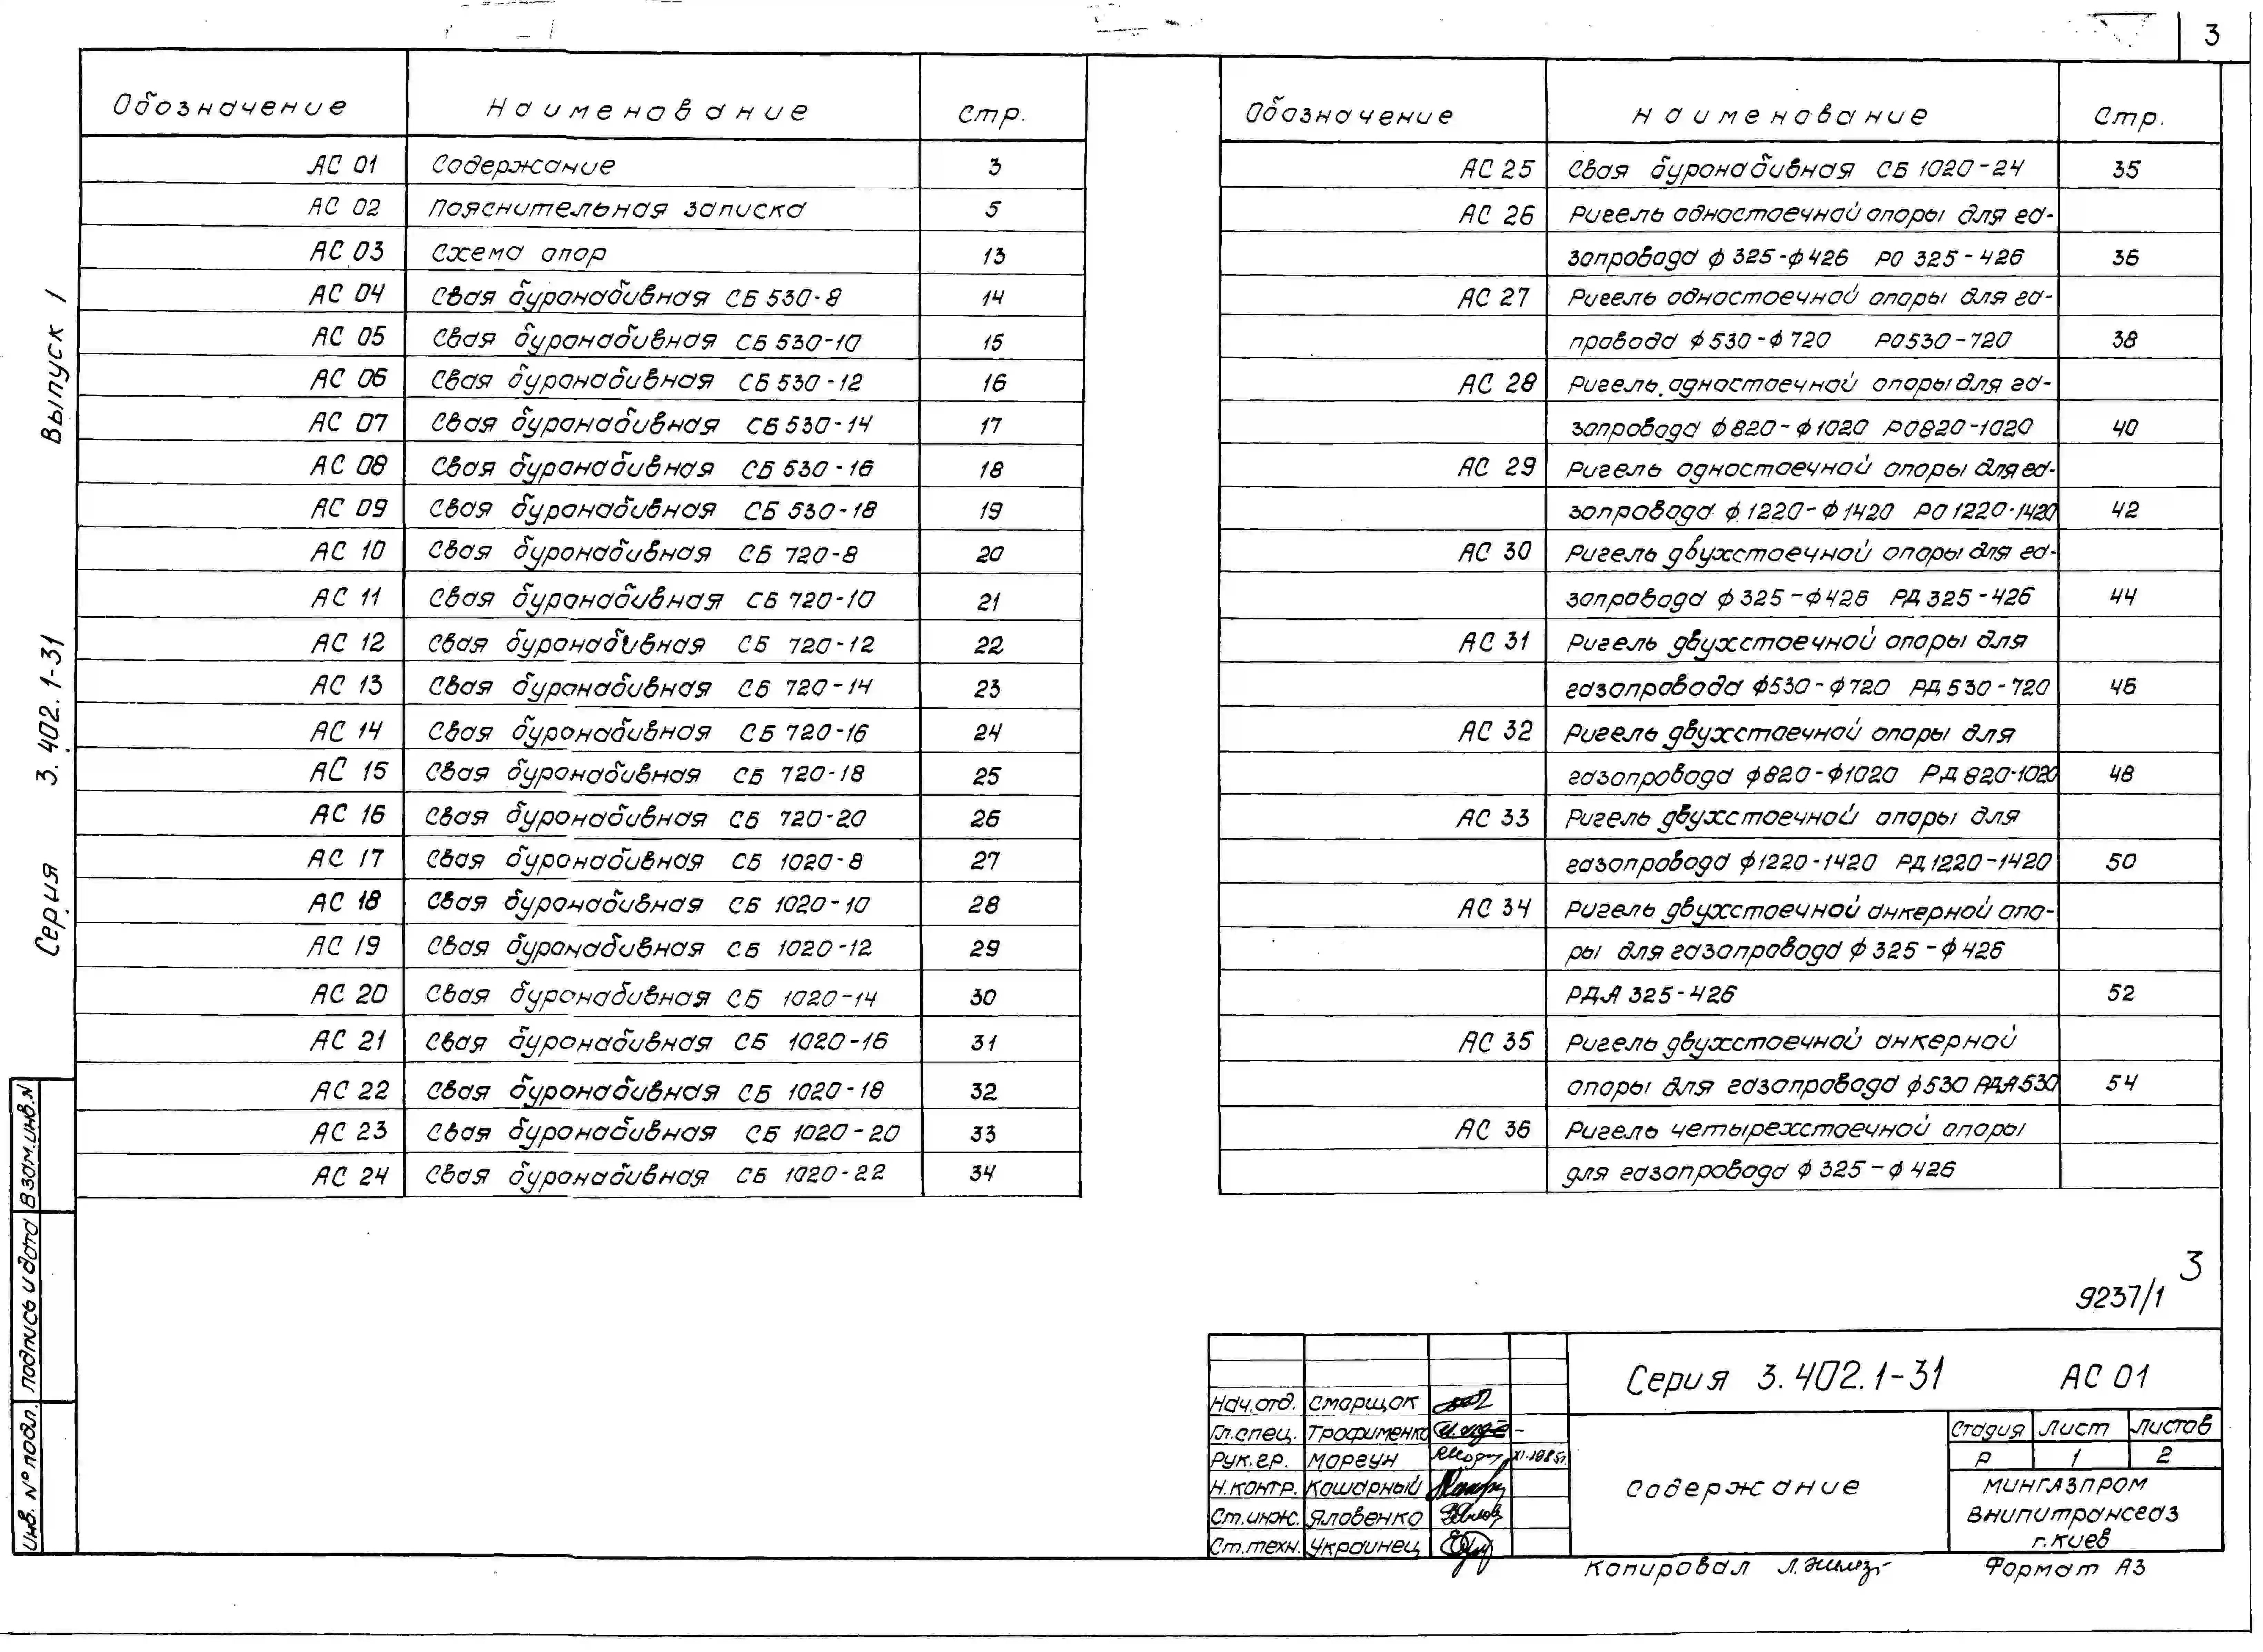 3
Обозначение Наименование Стр.
АС 01 Содержание 3
АС 02 Пояснительная записка 5
АС 03 Схема опор 13
АС 04 Свая буронабивная СБ 530-8 14
АС 05 Свая буронабивная СБ 530-10 15
АС 06 Свая буронабивная СБ 530-12 16
АС 07 Свая буронабивная СБ 530-14 17
АС 08 Свая буронабивная СБ 530-16 18
АС 09 Свая буронабивная СБ 530-18 19
АС 10 Свая буронабивная СБ 720-8 20
АС 11 Свая буронабивная СБ 720-10 21
АС 12 Свая буронабивная СБ 720-12 22
АС 13 Свая буронабивная СБ 720-14 23
АС 14 Свая буронабивная СБ 720-16 24
АС 15 Свая буронабивная СБ 720-18 25
АС 16 Свая буронабивная СБ 720-20 26
АС 17 Свая буронабивная СБ 1020-8 27
АС 18 Свая буронабивная СБ 1020-10 28
АС 19 Свая буронабивная СБ 1020-12 29
АС 20 Свая буронабивная СБ 1020-14 30
АС 21 Свая буронабивная СБ 1020-16 31
АС 22 Свая буронабивная СБ 1020-18 32
АС 23 Свая буронабивная СБ 1020-20 33
АС 24 Свая буронабивная СБ 1020-22 34
Обозначение Наименование Стр.
АС 25 Свая буронабивная СБ 1020-24 35
АС 26 Ригель одностоечной опоры для га-
зопровода ф 325-ф426 РО 325-426 36
АС 27 Ригель одностоечной опоры для га-
провода ф530-ф720 РО530-720 38
АС 28 Ригель одностоечной опоры для га-
зопровода ф820-ф1020 РО820-1020 40
АС 29 Ригель одностоечной опоры для га-
зопровода ф 1220-ф1420 РО1220-1420 42
АС 30 Ригель двухстоечной опоры для га-
зопровода ф325-ф426 РД 325-426 44
АС 31 Ригель двухстоечной опоры для
газопровода ф530-ф720 РД 530-720 46
АС 32 Ригель двухстоечной опоры для
газопровода ф820-ф1020 РД 820-1020 48
АС 33 Ригель двухстоечной опоры для
газопровода ф1220-1420 РД 1220-1420 50
АС 34 Ригель двухстоечной анкерной опо-
ры для газопровода ф 325-ф 426
РДА 325-426 52
АС 35 Ригель двухстоечной анкерной
опоры для газопровода ф530 РДА530 54
АС 36 Ригель четырехстоечной опоры
для газопровода ф 325-ф 426
Серия 3.402.1-31 Выпуск 1
Инв. № подл. Подпись и дата Взам.инв.N
3
9237/1
Серия 3.402.1-31 АС 01
Нач.отд. Сморщок
Гл.спец. Трофименко
Рук.гр. Моргун XI.1985г.
Н.контр. Кошарный
Ст.инж. Яловенко
Ст.техн. Украинец
Содержание
Стадия Лист Листов
Р 1 2
МИНГАЗПРОМ
ВНИПИтрансгаз
г.Киев
Копировал
Формат А3